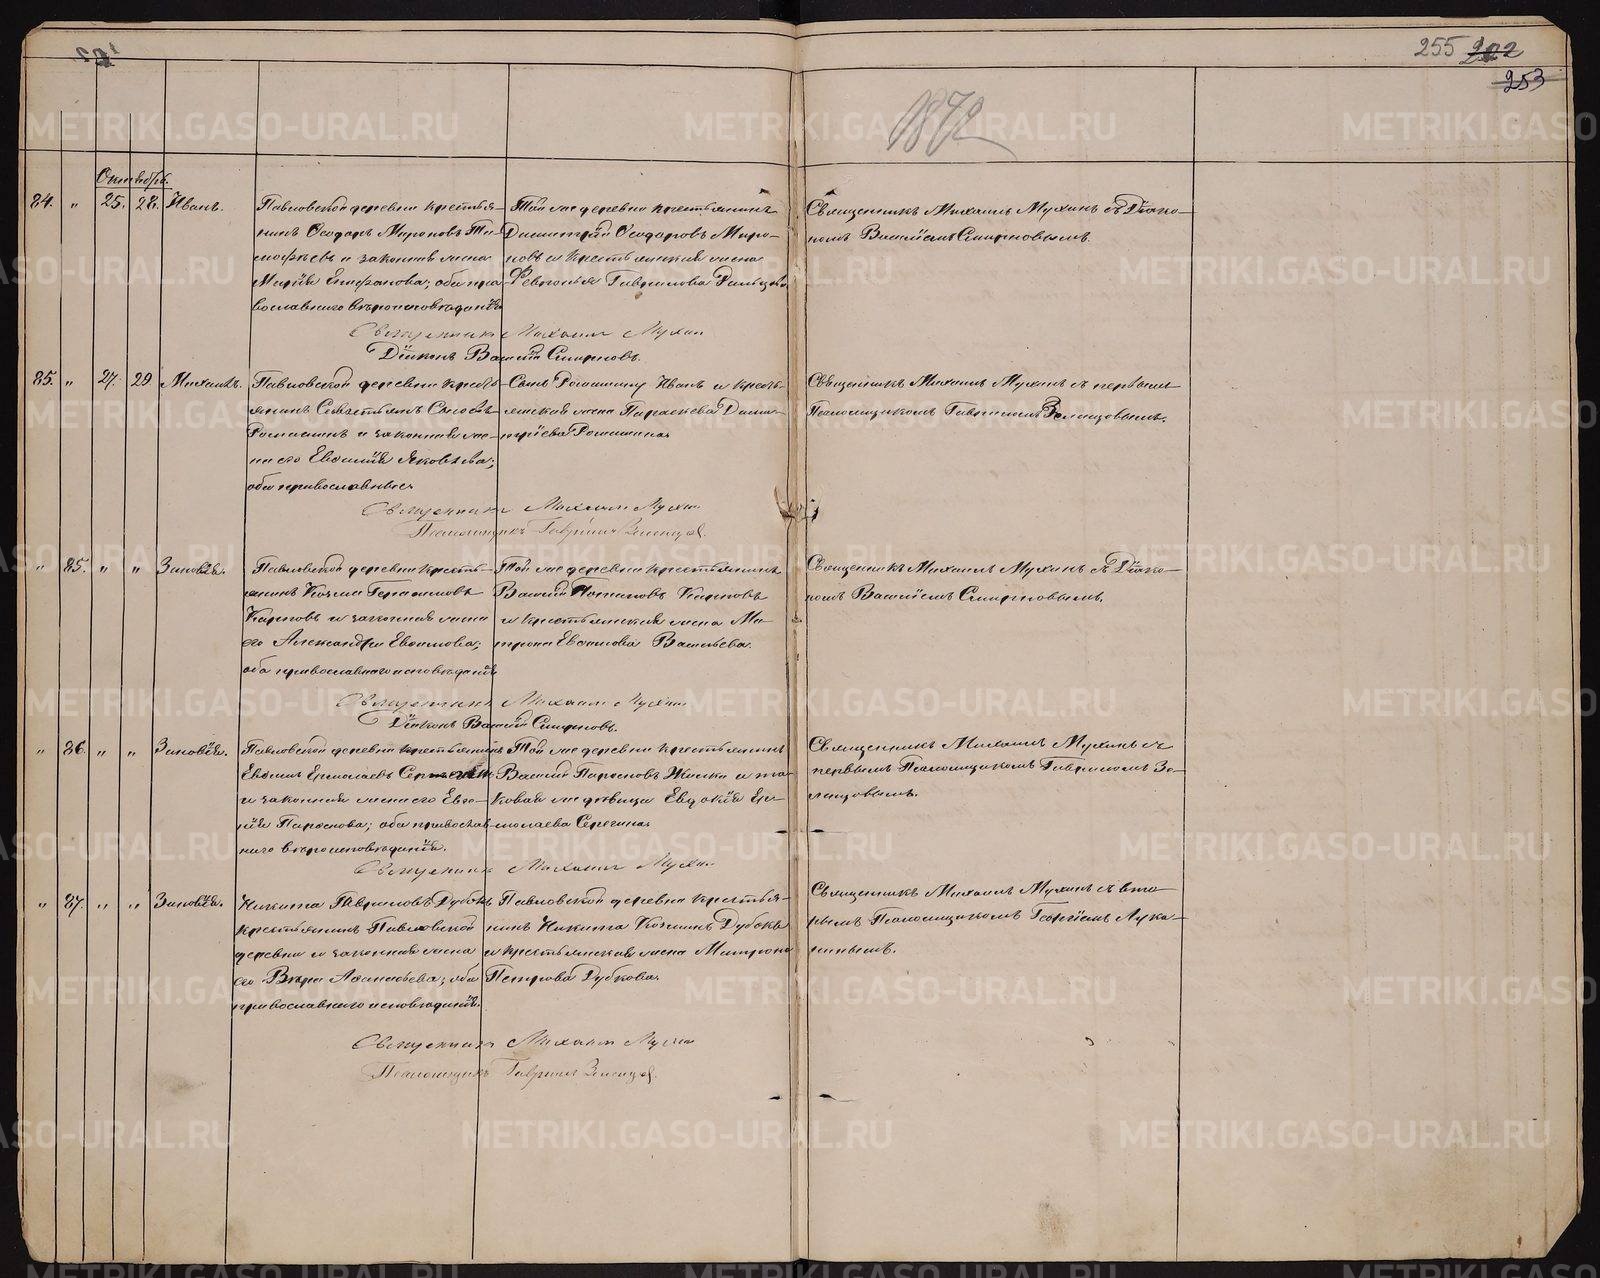 255 202
253
1872
Октябрь.
84. " 25. 28. Иванъ.
Павловской деревни крестья-
нинъ Ѳеодоръ Мироновъ Ти-
мофѣевъ и законная жена
Марія Епифанова; оба пра-
вославнаго вѣроисповѣданія
Той же деревни крестьянинъ
Димитрій Ѳеодоровъ Миро-
новъ и крестьянская жена
Февронья Гаврилова
Священникъ Михаилъ Мухинъ съ Діако-
номъ Василіемъ Смирновымъ.
Священникъ Михаилъ Мухин
Діаконъ Василій Смирновъ.
85. " 27. 29 Михаилъ.
Павловской деревни кресть-
янинъ
и законная же-
на его Евфимія Яковлева;
оба православные
Сынъ Иванъ и кресть-
янская жена Параскева Дими-
тріева
Священникъ Михаилъ Мухинъ съ первымъ
Псаломщикомъ Гавріиломъ
Священникъ Михаилъ Мухин
Псаломщикъ Гавріилъ
" 85. " " Зиновія.
Павловской деревни кресть-
янинъ Козма Герасимовъ
Карповъ и законная жена
его Александра Евфимова;
оба православнаго исповѣданія
Той же деревни крестьянинъ
Василій Потаповъ Карповъ
и крестьянская жена Ма-
трона Евфимова Васильева.
Священникъ Михаилъ Мухинъ съ Діако-
номъ Василіемъ Смирновымъ.
Священникъ Михаилъ Мухин
Діаконъ Василій Смирновъ.
" 86. " " Зиновія.
Павловской деревни крестьянинъ
Евфимъ Ермолаевъ
и законная жена его Евге-
нія Парѳенова; оба православ-
наго вѣроисповѣданія.
Той же деревни крестьянинъ
Василій Парѳеновъ и та-
ковая же дѣвица Евдокія Ер-
молаева Серегина
Священникъ Михаилъ Мухинъ съ
первымъ Псаломщикомъ Гавріиломъ
Священникъ Михаилъ Мухин
" 87. " " Зиновія.
Никита Гавриловъ Дубокъ
крестьянинъ Павловской
деревни и законная жена
его Вѣра Аѳанасьева; оба
православнаго исповѣданія.
Павловской деревни крестья-
нинъ Никита Козминъ Дубокъ
и крестьянская жена Матрона
Петрова Дубкова
Священникъ Михаилъ Мухинъ съ вто-
рымъ Псаломщикомъ Георгіемъ Лука-
нинымъ.
Священникъ Михаилъ Мухин
Псаломщикъ Гавріилъ
METRIKI.GASO-URAL.RU